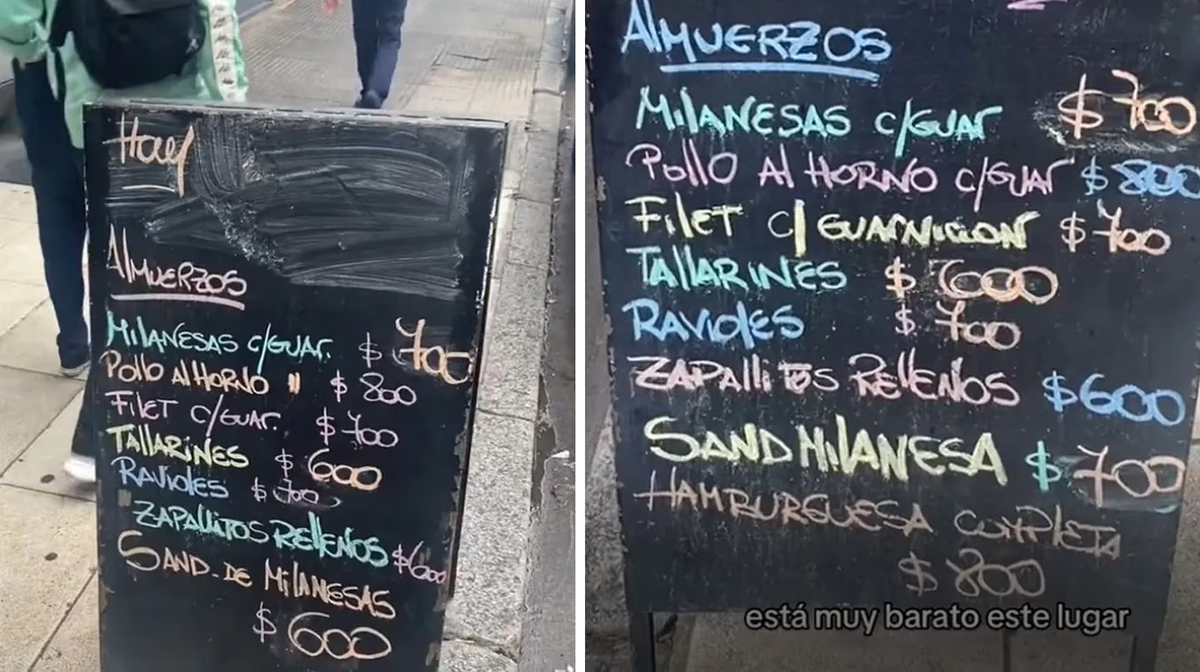 Hoy
Almuerzos
Milanesas c/guar. $ 700
Pollo al Horno " $ 800
Filet c/guar. $ 700
Tallarines $ 600
Ravioles $ 700
Zapallitos Rellenos $600
Sand. de Milanesas
$ 600
Almuerzos
Milanesas c/guar $ 700
Pollo al Horno c/guar $ 800
Filet c/guarnicion $ 700
Tallarines $ 600
Ravioles $ 700
Zapallitos Rellenos $600
Sand Milanesa $ 700
Hamburguesa completa
$ 800
está muy barato este lugar